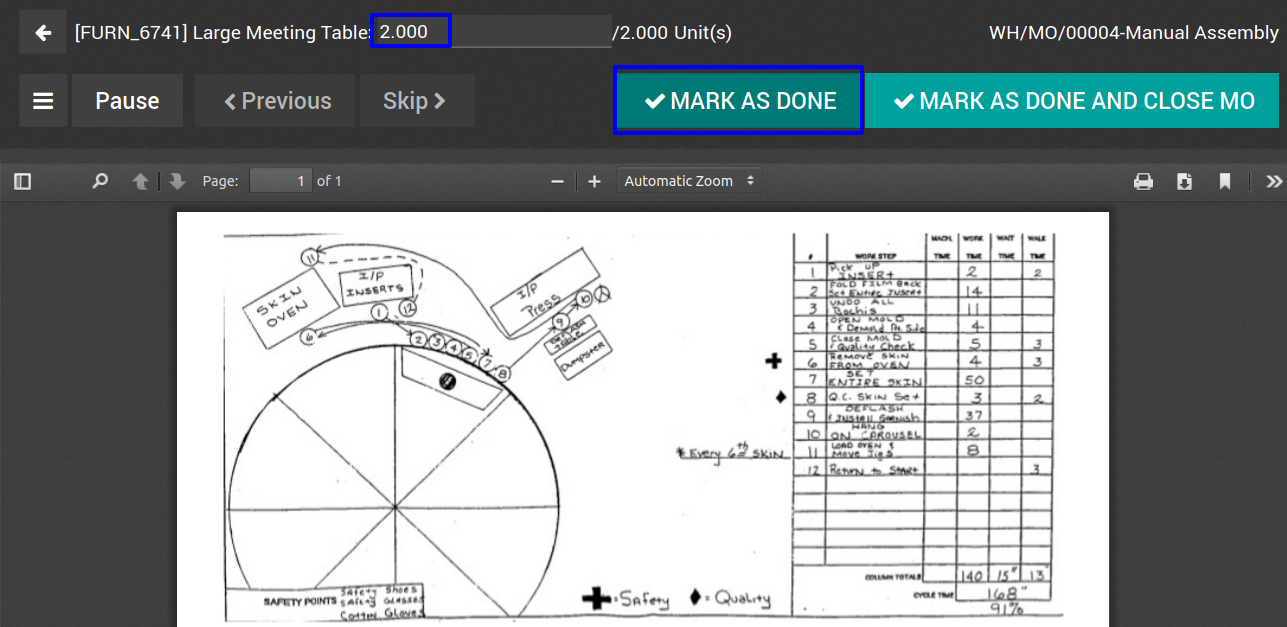 [FURN_6741] Large Meeting Table: 2.000 /2.000 Unit(s) WH/MO/00004-Manual Assembly
Pause Previous Skip MARK AS DONE MARK AS DONE AND CLOSE MO
Page: 1 of 1 Automatic Zoom
11
SKIN
OVEN
I/P
INSERTS
I/P
Press
10
1
12
6
9
2
3
4
5
7
8
DEFLASH
TABLE
DUMPSTER
MACH. WORK WAIT WALK
# WORK STEP TIME TIME TIME TIME
1 Pick UP INSERT 2 2
2 FOLD FILM BACK Set Entire Insert 14
3 UNDO ALL 11
4 OPEN MOLD & Demold Pt. Side 4
5 Close MOLD / Quality Check 5 3
6 Remove SKIN FROM OVEN 4 3
7 SET ENTIRE SKIN 50
8 Q.C. SKIN Set 3 2
9 DEFLASH & INSTALL Garnish 37
10 HANG ON CAROUSEL 2
* Every 6th SKIN 11 LOAD OVEN & Move Jigs 8
12 Return to START 3
COLUMN TOTALS 140 15" 13
CYCLE TIME 168"
91%
SAFETY POINTS SAFETY Shoes
SAFETY GLASSES
Cotton Gloves
= Safety = Quality